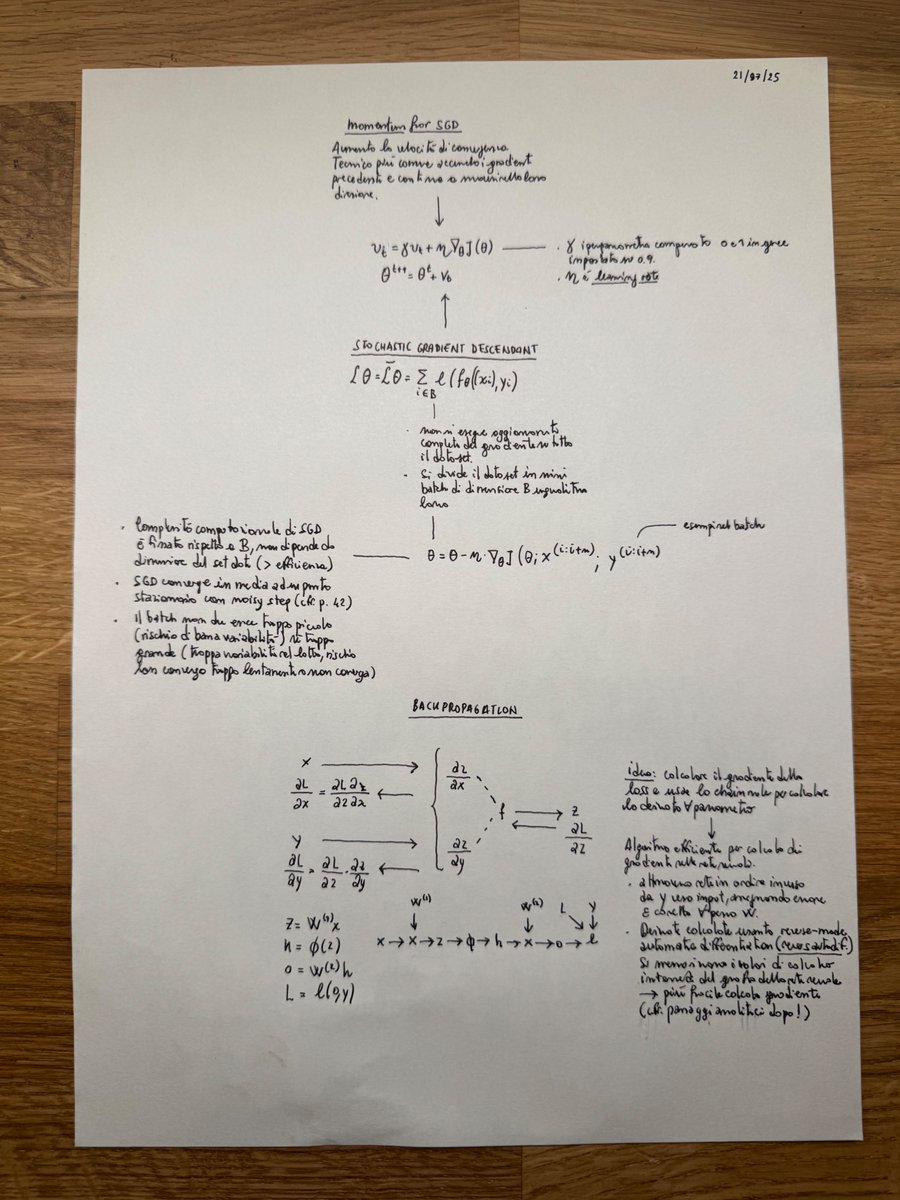 21/07/25
Momentum for SGD
Aumenta la velocità di convergenza.
Tecnica più comune secondo i gradient
precedenti e continua a muoversi nella loro
direzione.
v_t = γ v_t + η ∇_θ J(θ)
θ^{t+1} = θ^t + v_t
· γ iperparametro compreso tra 0 e 1 in genere
impostato su 0.9.
· η è learning rate
STOCHASTIC GRADIENT DESCENDANT
ℒθ = ℒ̃θ = Σ_{i∈B} ℓ(f_θ((x_i), y_i)
· non si esegue aggiornamento
completo del gradiente su tutto
il dataset.
· Si divide il dataset in mini
batch di dimensione B uguali tra
loro
θ = θ - η · ∇_θ J(θ; x^{(i:i+n)}; y^{(i:i+n)})
esempi nel batch
· Complessità computazionale di SGD
è fissata rispetto a B, non dipende da
dimensione del set dati (> efficienza)
· SGD converge in media ad un punto
stazionario con noisy step (cfr. p. 42)
· il batch non deve essere troppo piccolo
(rischio di bassa variabilità) né troppo
grande (troppa variabilità nel lotto, rischio
loss converga troppo lentamente o non converga)
BACKPROPAGATION
x
∂L/∂x = ∂L/∂z ∂z/∂x
y
∂L/∂y = ∂L/∂z · ∂z/∂y
∂z/∂x
∂z/∂y
f
z
∂L/∂z
z = W^{(1)}x
h = ϕ(z)
o = W^{(2)}h
L = ℓ(o,y)
W^{(1)} W^{(2)} L y
x → x → z → ϕ → h → x → o → ℓ
idea: calcolare il gradiente della
loss e usare la chain rule per calcolare
la derivata ∀ parametro
Algoritmo efficiente per calcolo di
gradienti nelle reti neurali.
· attraverso rete in ordine inverso
da y verso input, errore
e ∀ peso W.
· Derivate calcolate usando reverse-mode
automatic differentiation (reverse autodif.)
Si memorizzano i valori di calcolo
intermedi del grafo della rete neurale
→ più facile calcolo gradiente
(cfr. passaggi analitici dopo!)